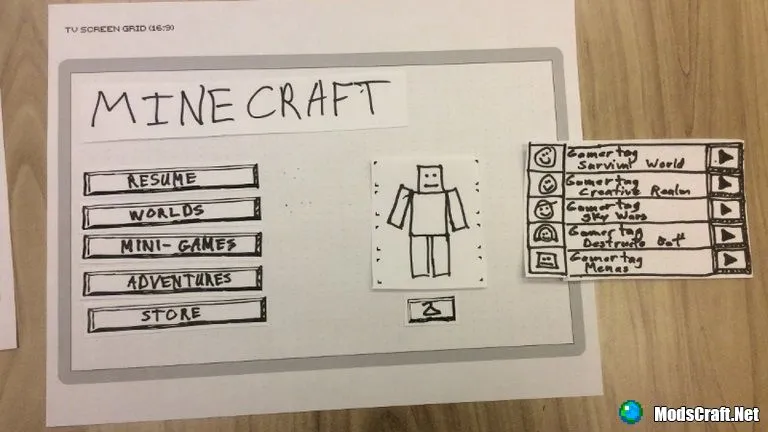 TV SCREEN GRID (16:9)
MINECRAFT
RESUME
WORLDS
MINI-GAMES
ADVENTURES
STORE
Gamertag
Survival World
Gamertag
Creative Realm
Gamertag
Sky Wars
Gamertag
Destructo Bot
Gamertag
Menus
ModsCraft.Net